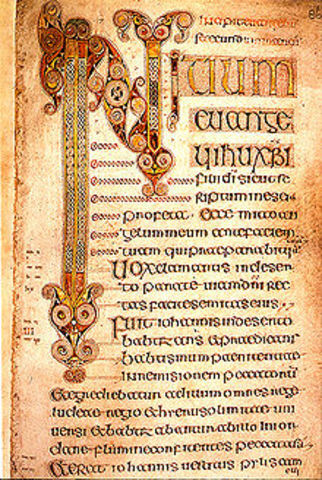 INITIUM
EUANGE
LII IHU XPI
fili di sicut sc
riptum in esai
profeta Ecce mitto an
gelum meum ante faciem
tuam qui praeparabit ui
Uox clamantis in deser
to parate uiam dni rec
tas facite semitas eius
Fuit iohannis in deserto
babtizans et praedicans
babtismum paenitentiae
in remisionem peccatorum
Et egrediebatur ad illum omnes
iudeae regio et hierusolimitae uni
uersi et babtizabantur ab illo in ior
dane flumine confitentes peccata sua
Et erat iohannis uestitus pylis cam